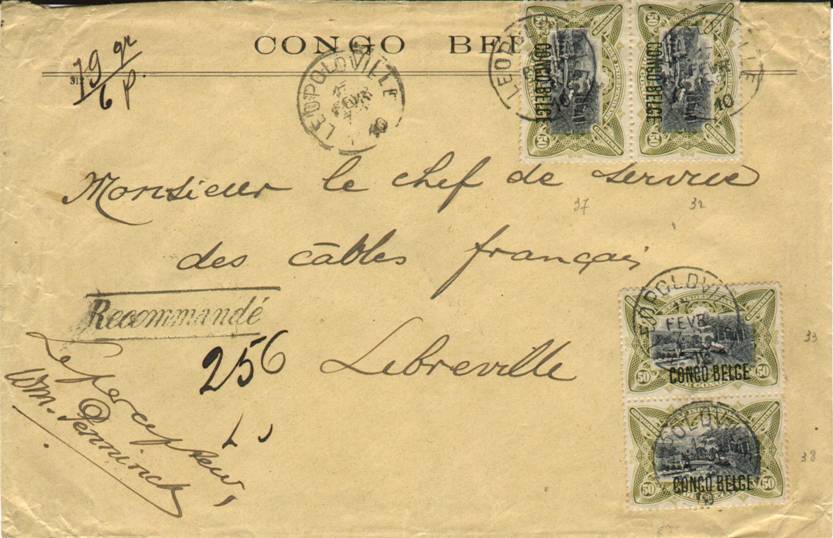 CONGO BEL
79 gr
6 p.
LEOPOLDVILLE
FEVR
10
LEOPOLDVILLE
10
CONGO BELGE
50
CONGO BELGE
50
Monsieur le chef de service
37 32
des câbles français
Recommandé
256
Lebreville
Le percepteur,
Wm. Penninck
LEOPOLDVILLE
FEVR
10
50 CONGO BELGE 50
33
LEOPOLDVILLE
50 CONGO BELGE 50
38